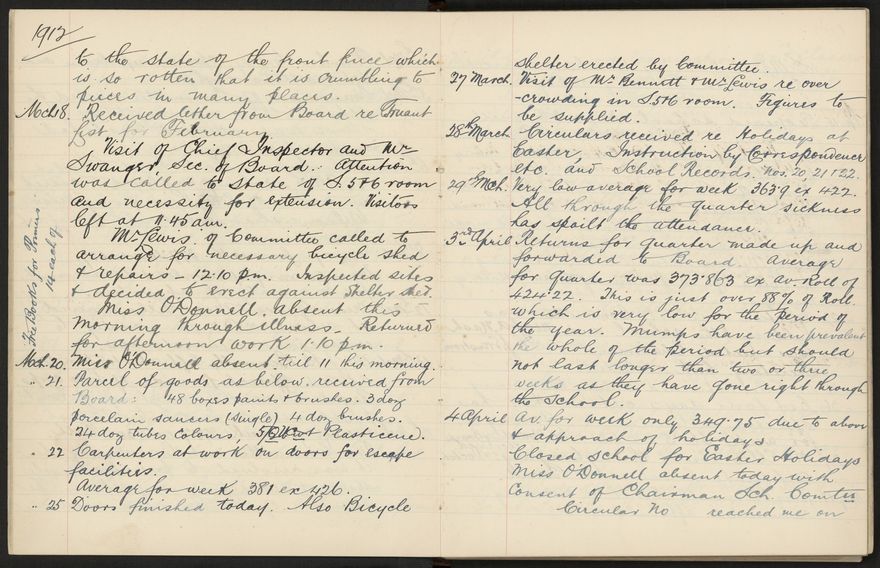 1912
to the state of the front fence which
is so rotten that it is crumbling to
pieces in many places.
Mch 18. Received letter from Board re Truant
list for February
Visit of Chief Inspector and Mr
Swanger, Sec. of Board. Attention
was called to state of S.5+6 room
and necessity for extension. Visitors
left at 11.45 am.
Mr Lewis of Committee called to
arrange for necessary bicycle shed
& repairs – 12.10 pm. Inspected sites
& decided to erect against shelter shed.
Miss O'Donnell absent this
morning through illness. Returned
for afternoon work 1.10 p.m.
Free Books for Primers
14 each of
Mch. 20. Miss O'Donnell absent till 11 this morning.
" 21. Parcel of goods as below received from
Board: 48 boxes paints + brushes. 3 doz
porcelain saucers (single) 4 doz brushes.
24 doz tubes colours, Plasticene.
" 22 Carpenters at work on doors for escape
facilities.
Average for week 381 ex 426.
" 25 Doors finished today. Also Bicycle
shelter erected by Committee.
27 March. Visit of Mr Bennett & Mr Lewis re over
-crowding in S5+6 room. Figures to
be supplied.
28th March Circulars received re Holidays at
Easter, Instruction by Correspondence
etc. and School Records. Nos. 20, 21 + 22.
29th Mch. Very low average for week 363.9 ex 422.
All through the quarter sickness
has spoilt the attendance.
3rd April Returns for quarter made up and
forwarded to Board. Average
for quarter was 373.863 ex av. Roll of
424.22. This is just over 88% of Roll.
which is very low for the period of
the year. Mumps have been prevalent
the whole of the period but should
not last longer than two or three
weeks as they have gone right through
the school.
4 April Av. for week only 349.75 due to above
& approach of holidays
Closed School for Easter Holidays
Miss O'Donnell absent today with
consent of Chairman Sch. Comtee
Circular No reached me on